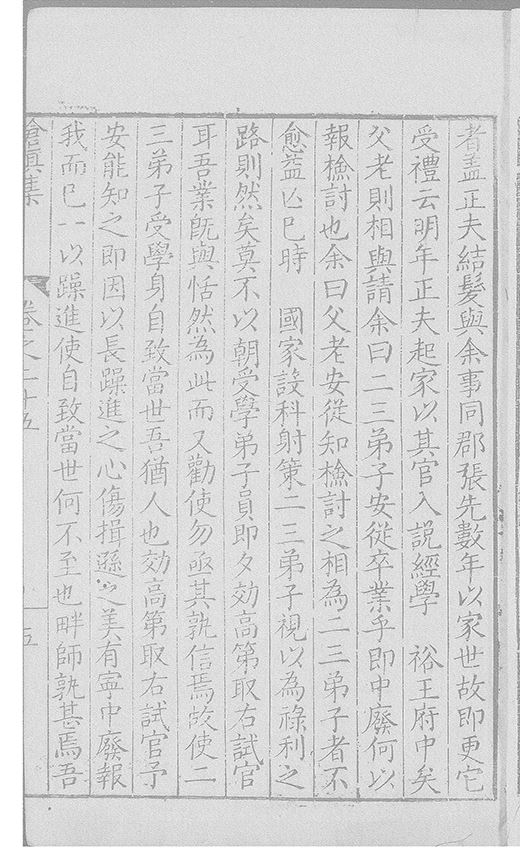 者盖正夫結髮與余事同郡張先數年以家世故即更它
受禮云明年正夫起家以其官入說經學　裕王府中矣
父老則相與請余曰二三弟子安從卒業乎即中廢何以
報檢討也余曰父老安從知檢討之相為二三弟子者不
愈益匕巳時　國家設科射策二三弟子視以為祿利之
路則然矣莫不以朝受學弟子員即夕効高第取右試官
耳吾業旣與恬然為此而又勸使勿亟其孰信焉故使二
三弟子受學身自致當世吾猶人也効高第取右試官予
安能知之即因以長躁進之心傷揖遜之美有寧中廢報
我而巳一以躁進使自致當世何不至也畔師孰甚焉吾
集　卷之二十五　五